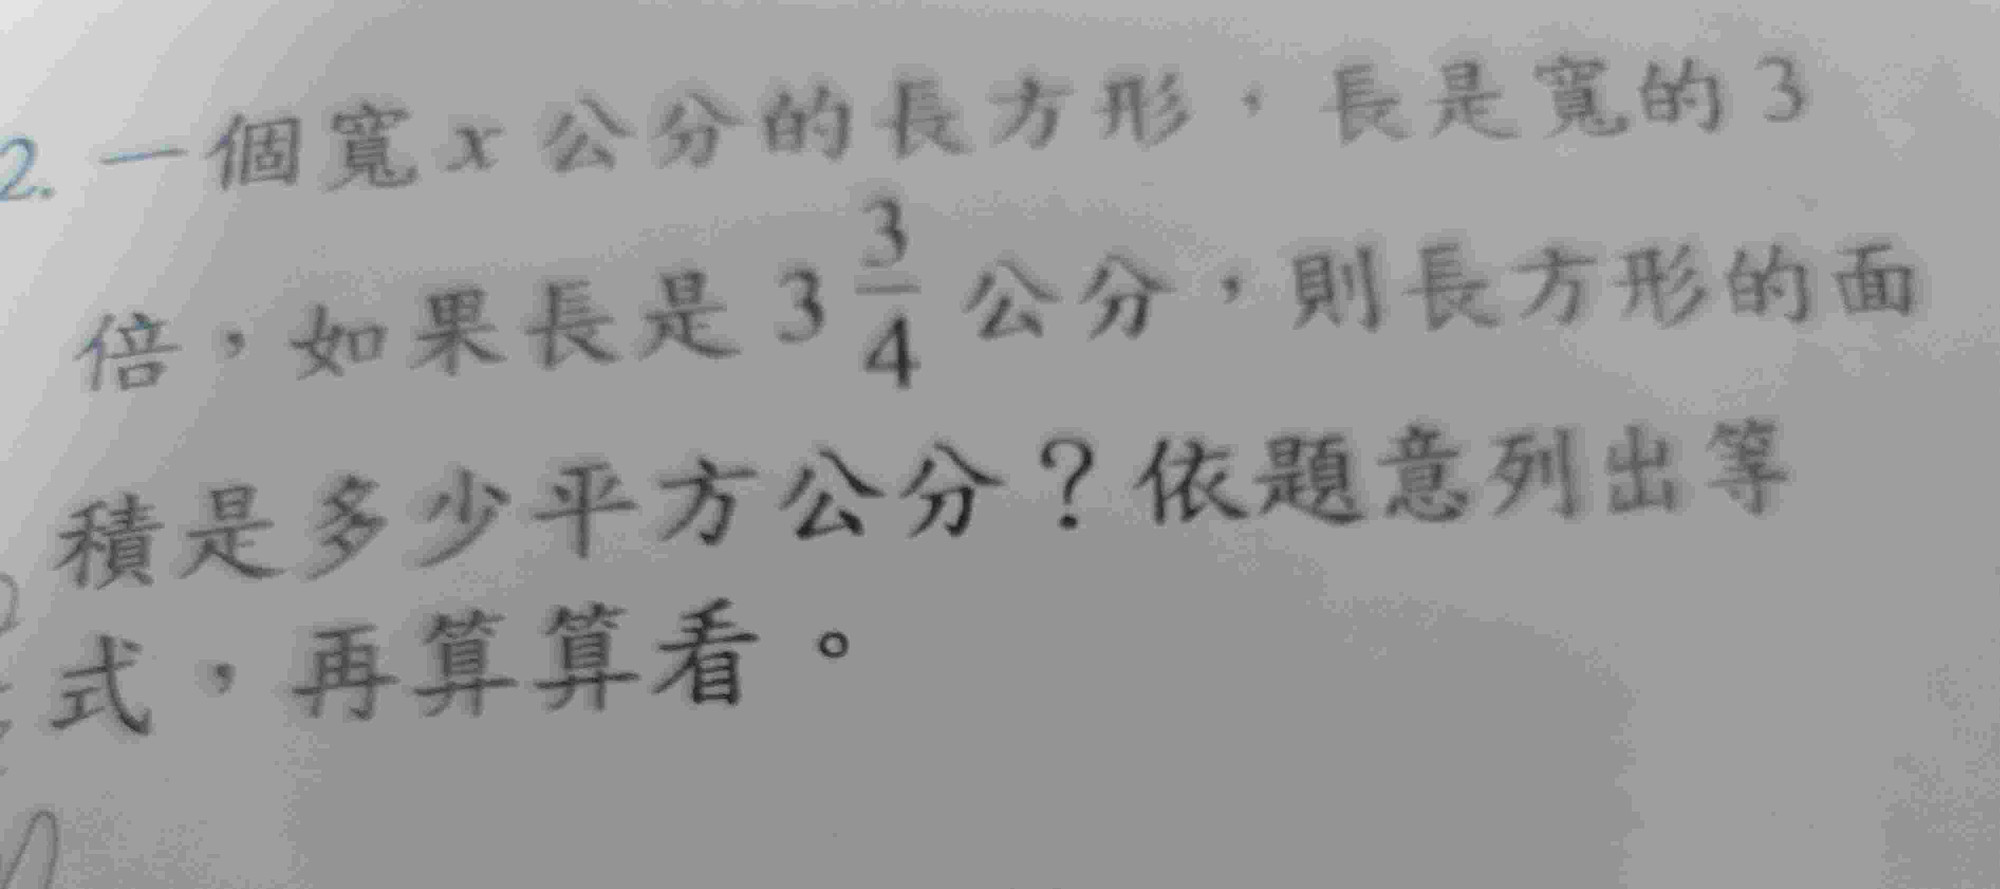 2. 一個寬 x 公分的長方形，長是寬的 3
倍，如果長是 3 3/4 公分，則長方形的面
積是多少平方公分？依題意列出等
式，再算算看。